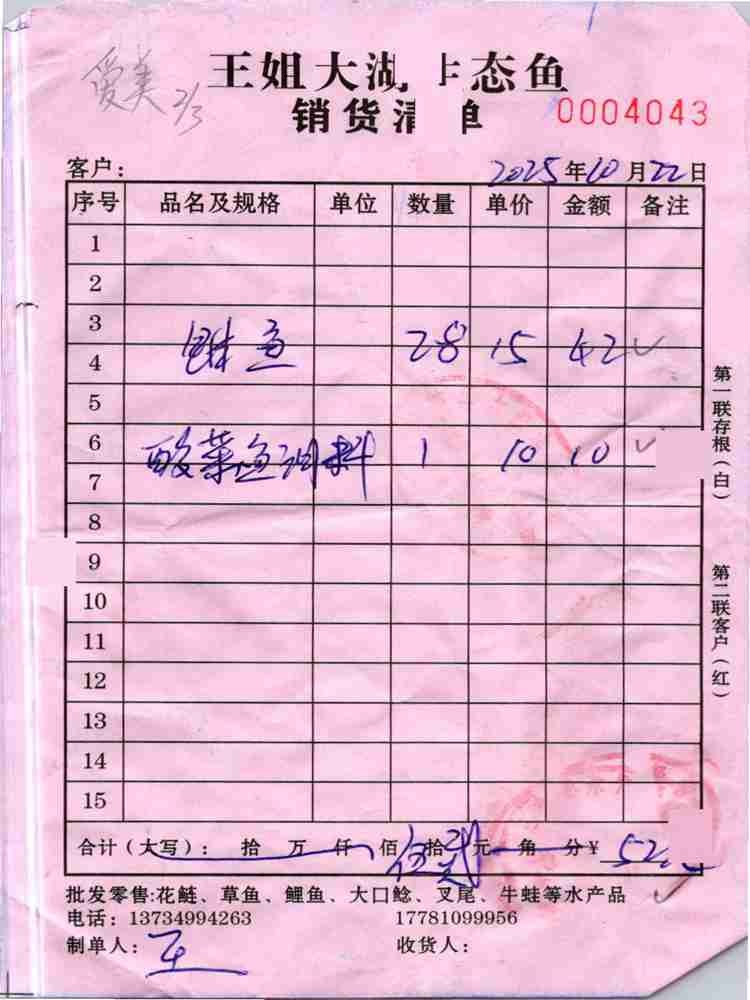 爱美 2/3
王姐大湖生态鱼
销货清单
0004043
客户：
2025年10月22日
序号 品名及规格 单位 数量 单价 金额 备注
1
2
3
鱼 28 15 42
4
5
6
酸菜鱼调料 1 10 10
7
8
9
10
11
12
13
14
15
合计（大写）： 拾 万 仟 佰 伍拾 贰元 角 分 ¥ 52
批发零售:花鲢、草鱼、鲤鱼、大口鲶、叉尾、牛蛙等水产品
电话：13734994263 17781099956
制单人：王 收货人：
第一联存根（白）
第二联客户（红）